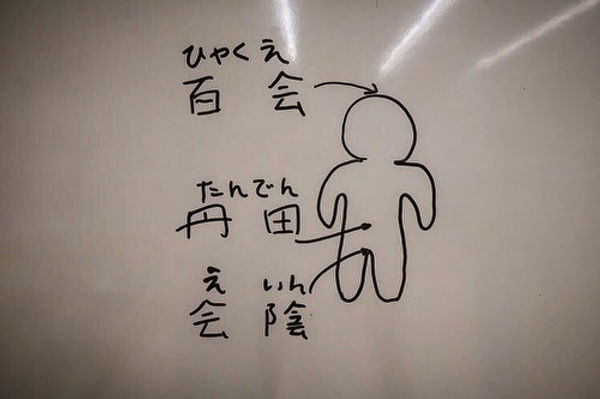 ひゃくえ
百会
たんでん
丹田
えいん
会陰